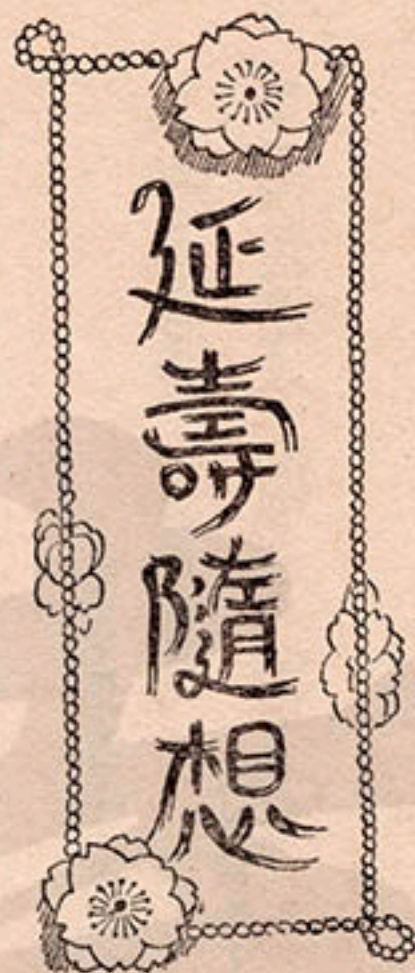 延壽隨想